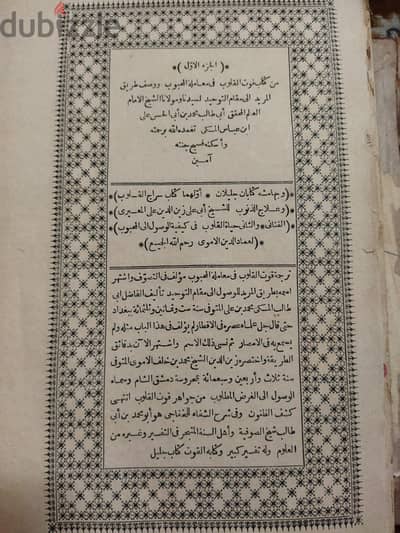 dubizzle
*(الجزء الاول)*
من كتاب قوت القلوب فى معاملة المحبوب ووصف طريق
المريد الى مقام التوحيد لسيدنا ومولانا الشيخ الامام
العالم المحقق أبى طالب محمد بن أبى الحسن على
ابن عباس المكى تغمده الله برحمته
وأسكنه فسيح جنته
آمين
*(وبهامشه كتابان جليلان * أولهما كتاب سراج القلوب)*
*(وعلاج الذنوب للشيخ أبى على زين الدين على المعبرى)*
*(الفنانى والثانى حياة القلوب فى كيفية الوصول الى المحبوب)*
*(لعماد الدين الاموى رحم الله الجميع)*
ترجمة قوت القلوب فى معاملة المحبوب مؤلف فى التصوف واشتهر
اسمه بطريق المريد للوصول الى مقام التوحيد تأليف الفاضل ابى
طالب المكى محمد بن على المتوفى سنة ست وثمانين وثلثمائة ببغداد
حتى قال جل علماء عصره فى الاقطار لم يؤلف فى هذا الباب مثله ولم
يسمع به فى الامصار ثم نسى ذلك الاسم واشتهر الآن بدقائق
الطريقة واختصره زين الدين الشيخ محمد بن خلف الاموى المتوفى
سنة ثلاث وأربعين وسبعمائة بمحروسة دمشق الشام وسماه
الوصول الى الغرض المطلوب من جواهر قوت القلوب انتهى
كشف الظنون وفى شرح الشفاء للخفاجى هو أبو محمد بن أبى
طالب شيخ الصوفية وأهل السنة المتبحر فى التفسير وغيره من
العلوم وله تفسير كبير وكتابه القوت كتاب جليل